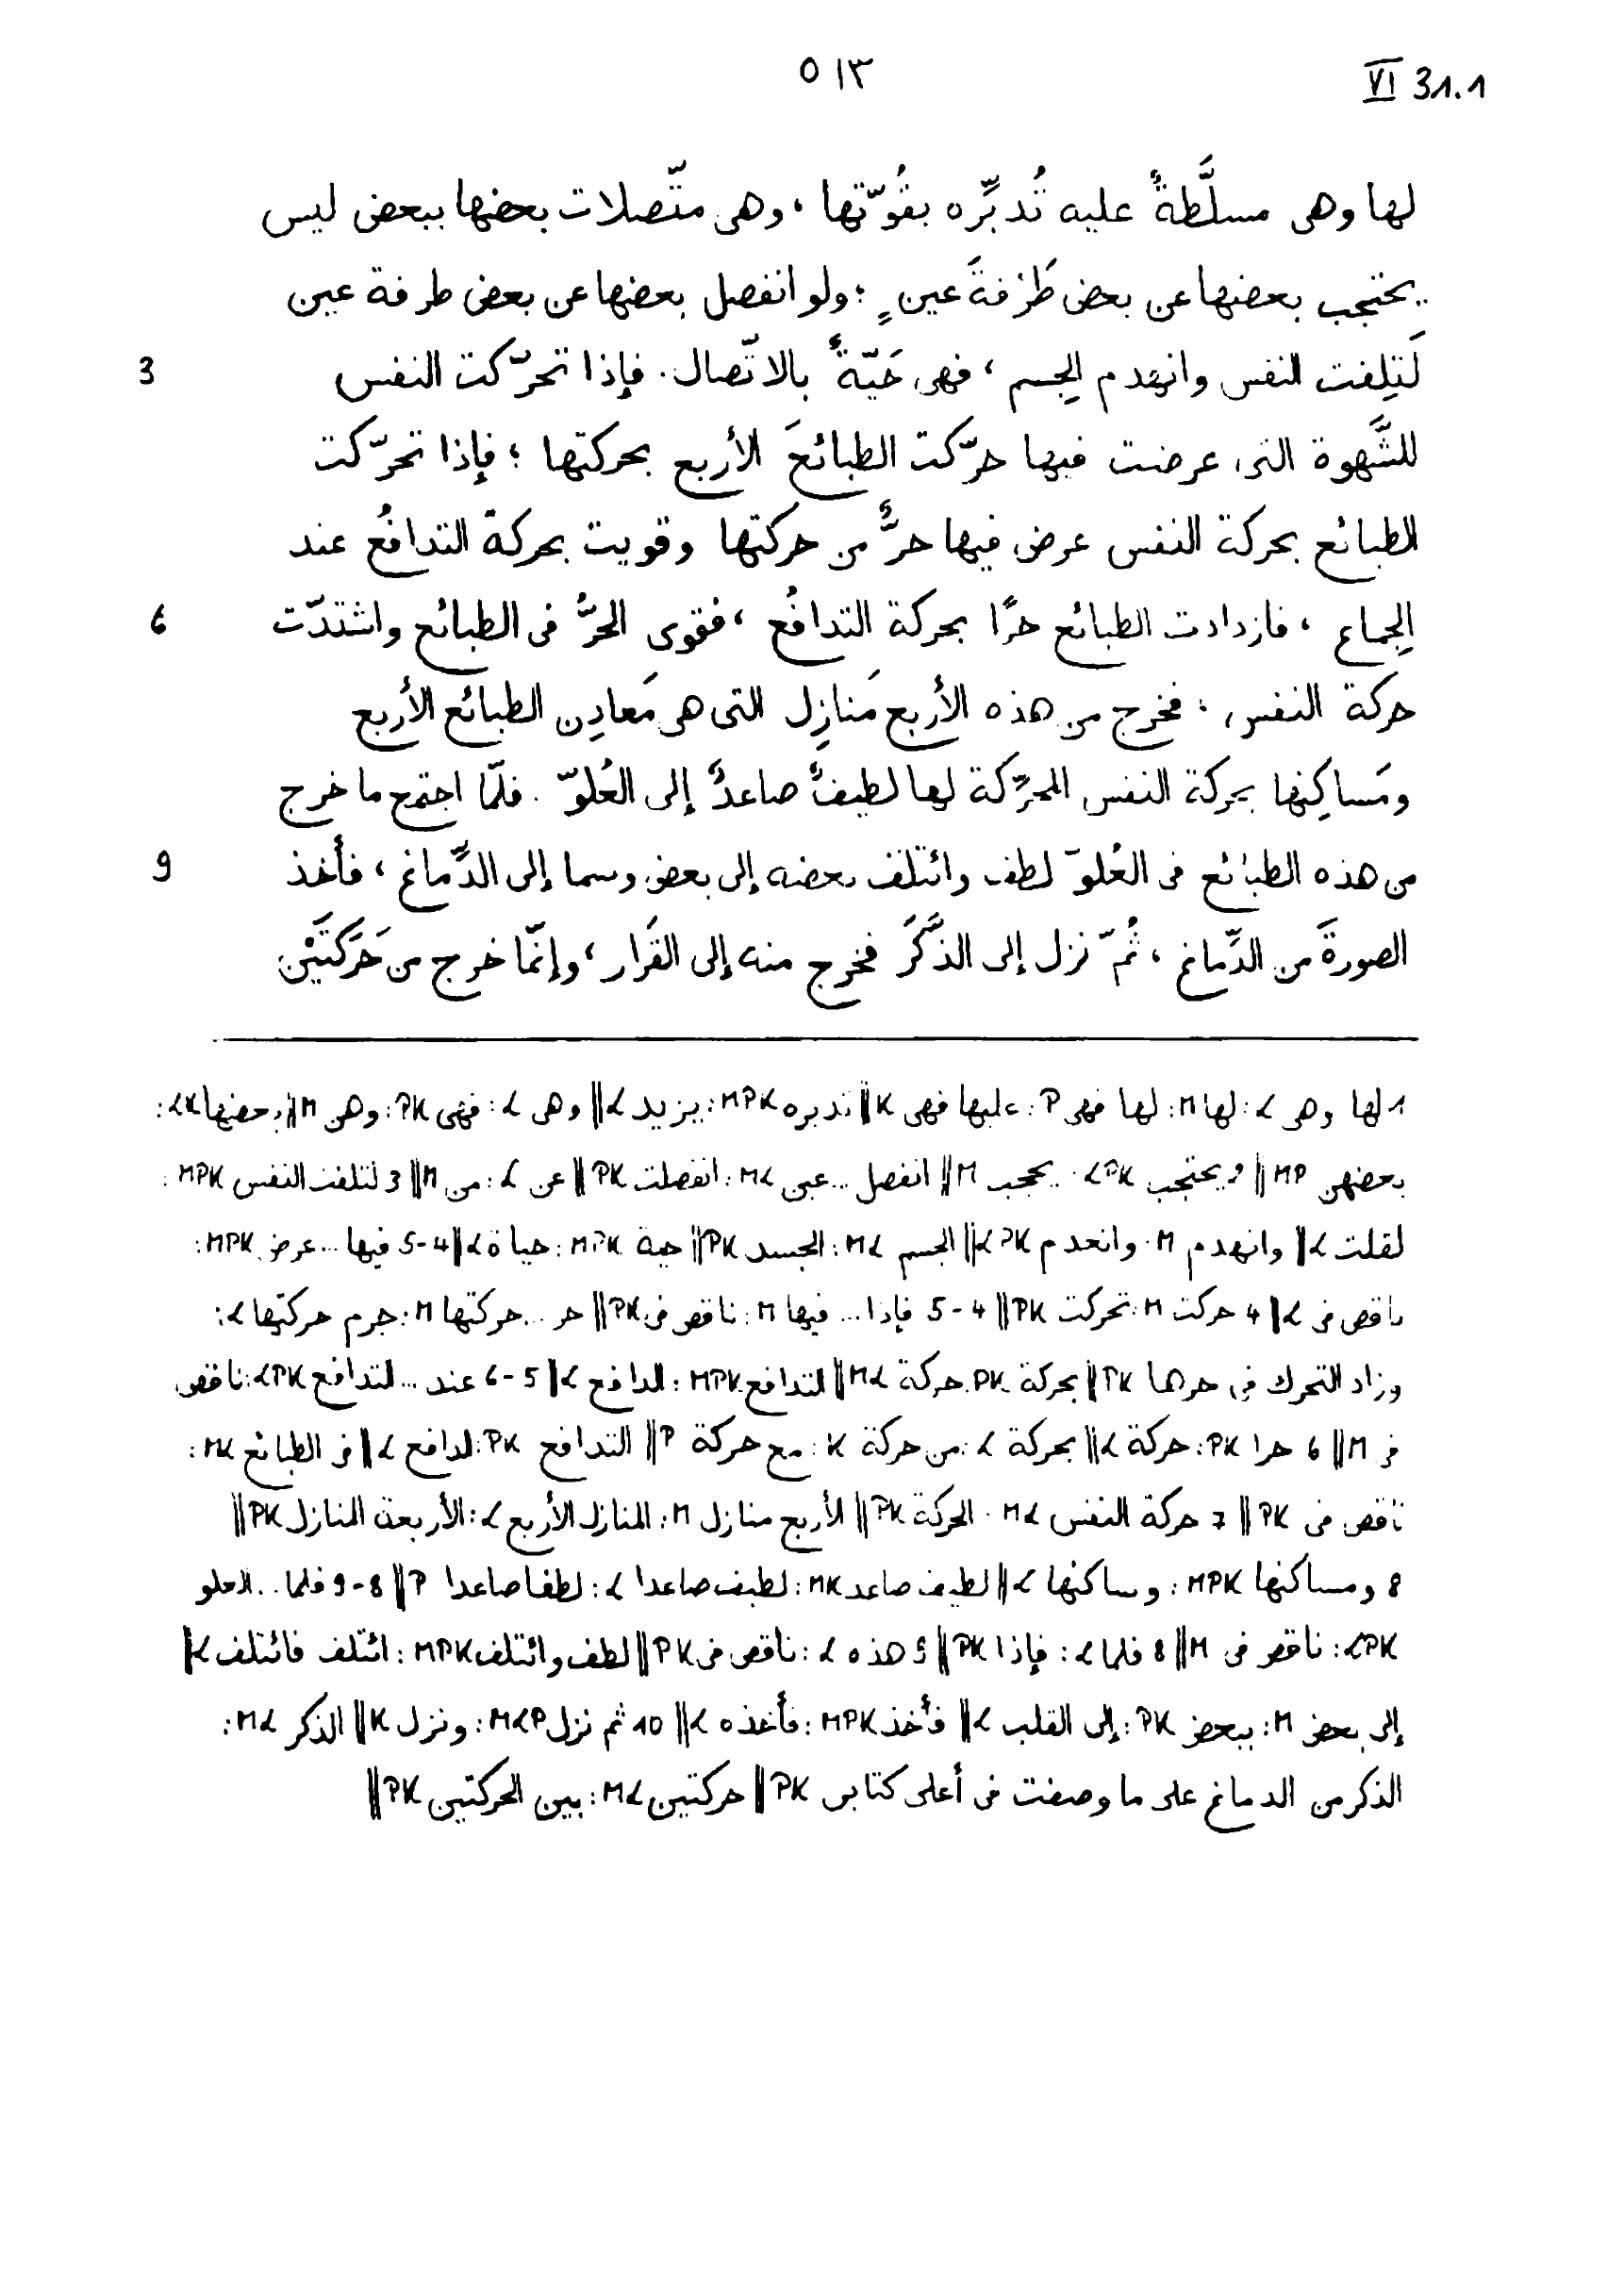 ٥١٣
VI 31.1
لها وهى مسلَّطةٌ عليه تُدبِّره بقُوّتها، وهى متّصلات بعضها ببعض ليس
يحتجب بعضها عن بعض طَرْفةَ عينٍ؛ ولو انفصل بعضها عن بعض طرفة عين
3 لَتَلِفت النفس وانهدم الجِسم، فهى حَيّةٌ بالاتّصال. فإذا تحرّكت النفس
للشَّهوة التى عرضت فيها حرّكت الطبائعَ الأربع بحركتها؛ فإذا تحرّكت
الطبائع بحركة النفس عرض فيها حرٌّ من حركتها وقويت بحركة التدافُع عند
6 الجِماع، فازدادت الطبائع حرًّا بحركة التدافُع، فقوى الحرُّ فى الطبائع واشتدّت
حركة النفس؛ فخرج من هذه الأربع مَنازِل التى هى مَعادِن الطبائع الأربع
ومَساكِنها بحركة النفس المحرِّكة لها لطيفٌ صاعدٌ إلى العُلوّ. فلمّا اجتمع ما خرج
9 من هذه الطبائع فى العُلوّ لطف وائتلف بعضه إلى بعض وسما إلى الدِّماغ، فأخذ
الصورةَ من الدِّماغ، ثُمّ نزل إلى الذَّكَرَ فخرج منه إلى القَرار، وإنّما خرج من حَرَكَتَيْن
1 لها وهى L: لها M: لها فهى P: عليها فهى K || تدبره MPK: يزيد L || وهى L: فهى PK: وهن M || بعضها LK:
بعضهن MP || 2 يحتجب LPK: يحجب M || انفصل ... عين ML: انفصلت PK || عن L: من M || 3 لتلفت النفس MPK:
لقلت L || وانهدم M: وانعدم LPK || الجسم ML: الجسد PK || حية MPK: حياة L || 4-5 فيها ... عرض MPK:
ناقص فى L || 4 حركت M: تحركت PK || 4-5 فإذا ... فيها M: ناقص فى PK || حر ... حركتها M: جرم حركتها L:
وزاد التحرك فى حرها PK || بحركة PK: حركة ML || التدافع MPK: الدافع L || 5-6 عند ... التدافع LPK: ناقص
فى M || 6 حرا PK: حركة L || بحركة L: من حركة K: مع حركة P || التدافع PK: الدافع L || فى الطبائع ML:
ناقص فى PK || 7 حركة النفس ML: الحركة PK || الأربع منازل M: المنازل الأربع L: الأربعة المنازل PK ||
8 ومساكنها MPK: وساكنها L || لطيف صاعد MK: لطيف صاعدا L: لطفا صاعدا P || 8-9 فلما ... العلو
LPK: ناقص فى M || 8 فلما L: فإذا PK || 9 هذه L: ناقص فى PK || لطف وائتلف MPK: ائتلف فائتلف L ||
إلى بعض M: ببعض PK: إلى القلب L || فأخذ MPK: فأخذه L || 10 ثم نزل MLP: ونزل K || الذكر ML:
الذكر من الدماغ على ما وصفت فى أعلى كتابى PK || حركتين ML: بين الحركتين PK ||